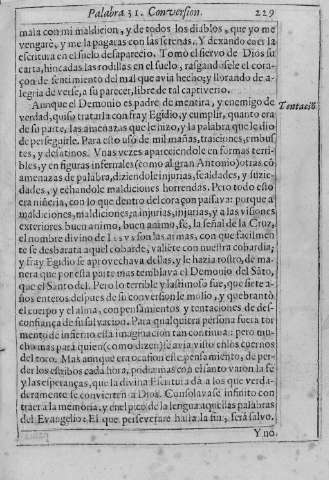 Palabra 31. Conversion. 229
mala con mi maldicion, y de todos los diablos, que yo me
vengarè, y me la pagaras con las setenas. Y dexando caer la
escritura en el suelo desaparecio. Tomo el siervo de Dios su
carta, hincadas las rodillas en el suelo, rasgandosele el coraçon
de sentimiento del mal que avia hecho; y llorando de alegria
de verse, a su parecer, libre de tal captiverio.
Aunque el Demonio es padre de mentira, y enemigo de
Tentaciõ
verdad, quiso tratarla con fray Egidio, y cumplir, quanto era
de su parte, las amenazas que le hizo, y la palabra que le dio
de perseguirle. Para esto usò de mil mañas, traiciones, embustes,
y desatinos. Unas vezes apareciendole en formas terribles,
y en figuras infernales (como al gran Antonio) otras cõ
amenazas de palabra, diziendole injurias, fealdades, y suziedades,
y echandole maldiciones horrendas. Pero todo esto
era niñeria, con lo que dentro del coraçon passava: porque a
maldiciones, maldiciones; a injurias, injurias, y a las visiones
exteriores buen animo, buen animo, sè, la señal de la Cruz,
el nombre divino de Iesus son las armas, con que facilmente
se desbarata aquel cobarde, valiẽte con nuestra cobardia;
y fray Egidio se aprovechava dellas, y le hazia rostro, de manera
que por esta parte mas temblava el Demonio del Sãto,
que el Santo del. Pero lo terrible y lastimoso fue, que siete años
enteros despues de su conversion le molio, y quebrantò
el cuerpo y el alma, con pensamientos y tentaciones de desconfiança
de su salvacion. Para qualquiera persona fuera tormento
de infierno esta imaginacion tan continua: pero mucho
mas para quien (como dizen) se avia visto en los cuernos
del toro. Mas aunque era ocasion este pensamiento, de perder
los estribos cada hora, podia mas con el santo varon la fe
y las esperanças, que la divina Escritura dà a los que verdaderamente
se convierten a Dios. Consolavase infinito con
traer a la memoria, y en el pico de la lengua aquellas palabras
del Evangelio: El que perseverare hasta la fin, serà salvo.
Y no.